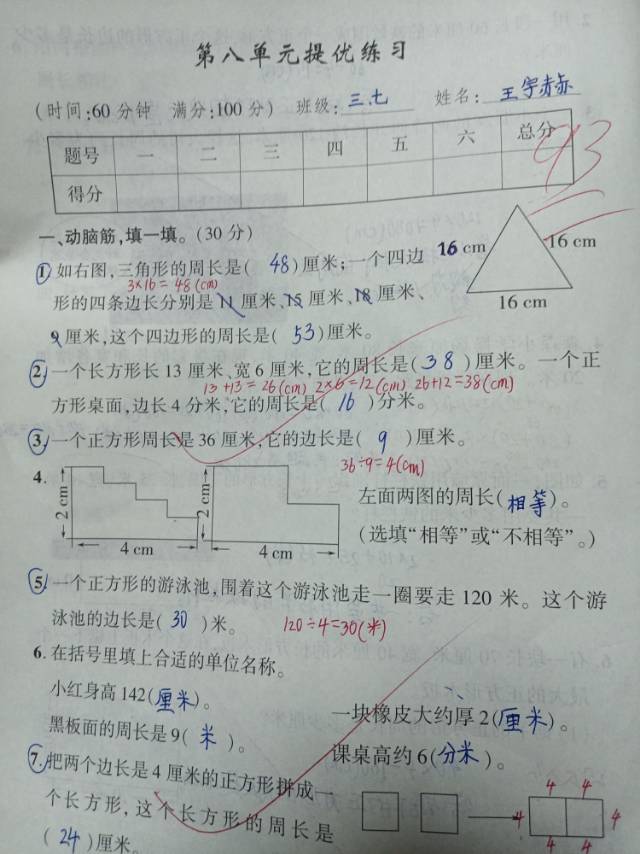 第八单元提优练习
(时间:60分钟 满分:100分) 班级:三.七 姓名:王宇赫
题号 一 二 三 四 五 六 总分
得分
93
一、动脑筋,填一填。(30分)
1 如右图,三角形的周长是( 48 )厘米;一个四边
3×16=48(cm)
形的四条边长分别是11厘米、15厘米、18厘米、
9厘米,这个四边形的周长是( 53 )厘米。
16 cm 16 cm
16 cm
2 一个长方形长13厘米、宽6厘米,它的周长是( 38 )厘米。一个正
13+13=26(cm) 2×6=12(cm) 26+12=38(cm)
方形桌面,边长4分米,它的周长是( 16 )分米。
3 一个正方形周长是36厘米,它的边长是( 9 )厘米。
36÷9=4(cm)
4.
2 cm 4 cm 2 cm 4 cm
左面两图的周长(相等)。
(选填“相等”或“不相等”。)
5 一个正方形的游泳池,围着这个游泳池走一圈要走120米。这个游
泳池的边长是( 30 )米。 120÷4=30(米)
6. 在括号里填上合适的单位名称。
小红身高142(厘米)。 一块橡皮大约厚2(厘米)。
黑板面的周长是9( 米 )。 课桌高约6(分米)。
7 把两个边长是4厘米的正方形拼成一
个长方形,这个长方形的周长是
( 24 )厘米。
4 4
4 4
4 4